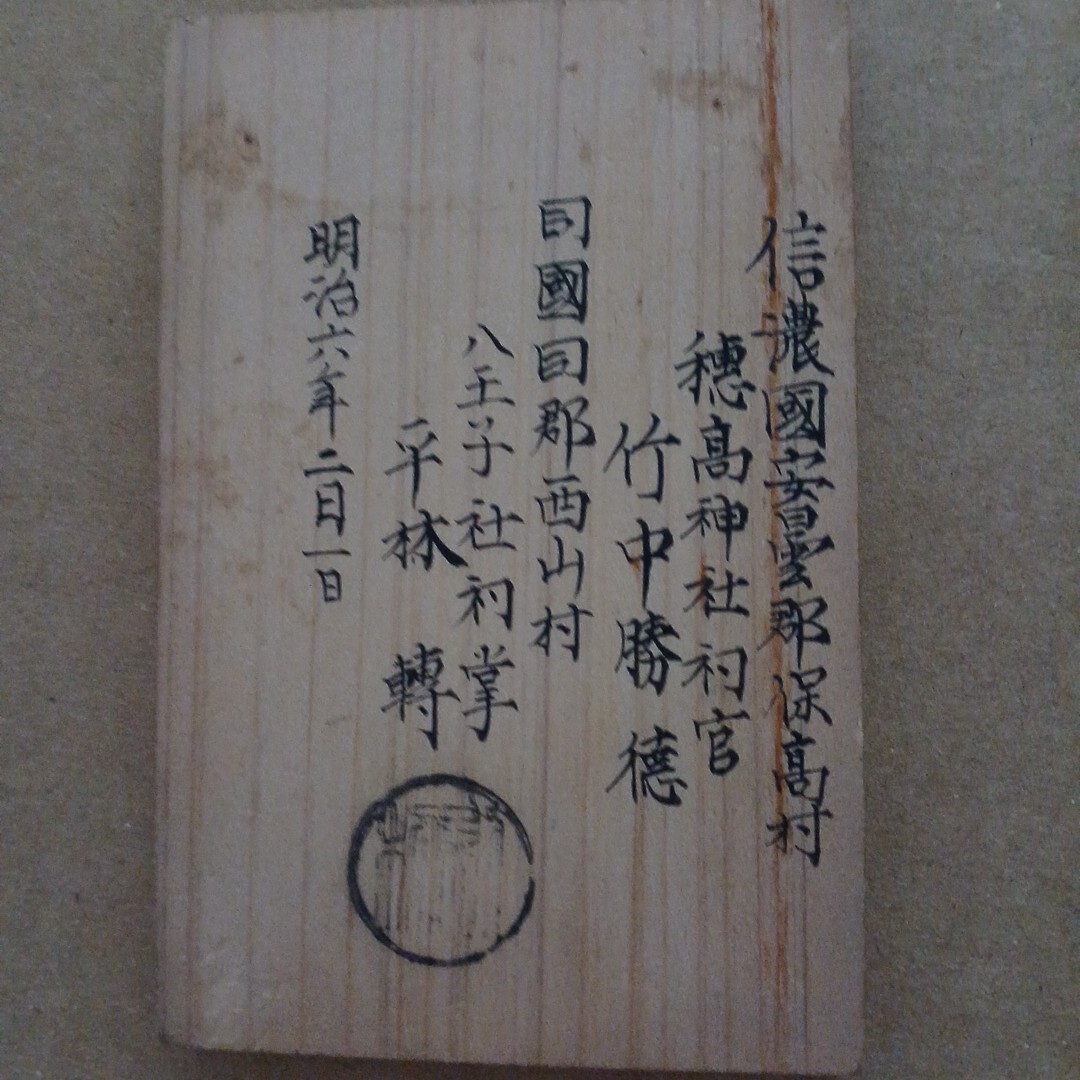 信濃國安曇郡保高村
穗高神社祠官
竹中勝德
同國同郡西山村
八王子社祠掌
平林 轉
明治六年二月一日